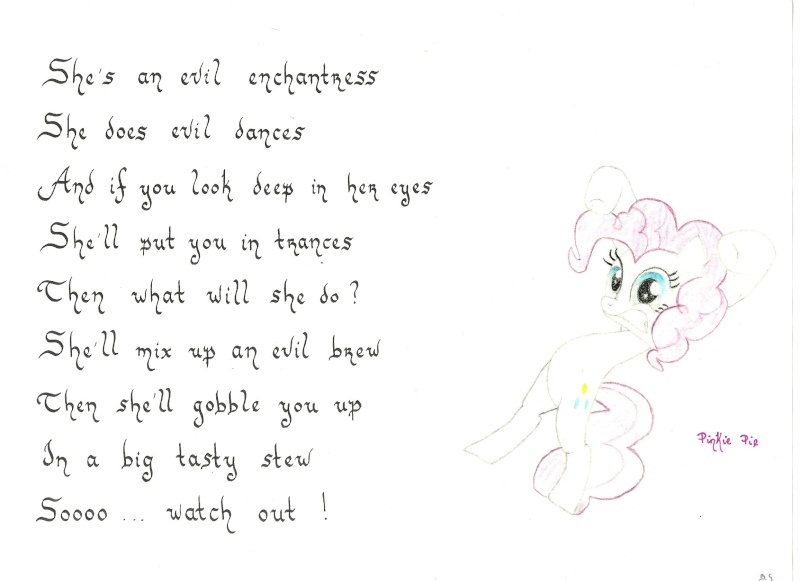 She's an evil enchantress
She does evil dances
And if you look deep in her eyes
She'll put you in trances
Then what will she do?
She'll mix up an evil brew
Then she'll gobble you up
In a big tasty stew
Soooo... watch out!
Pinkie Pie